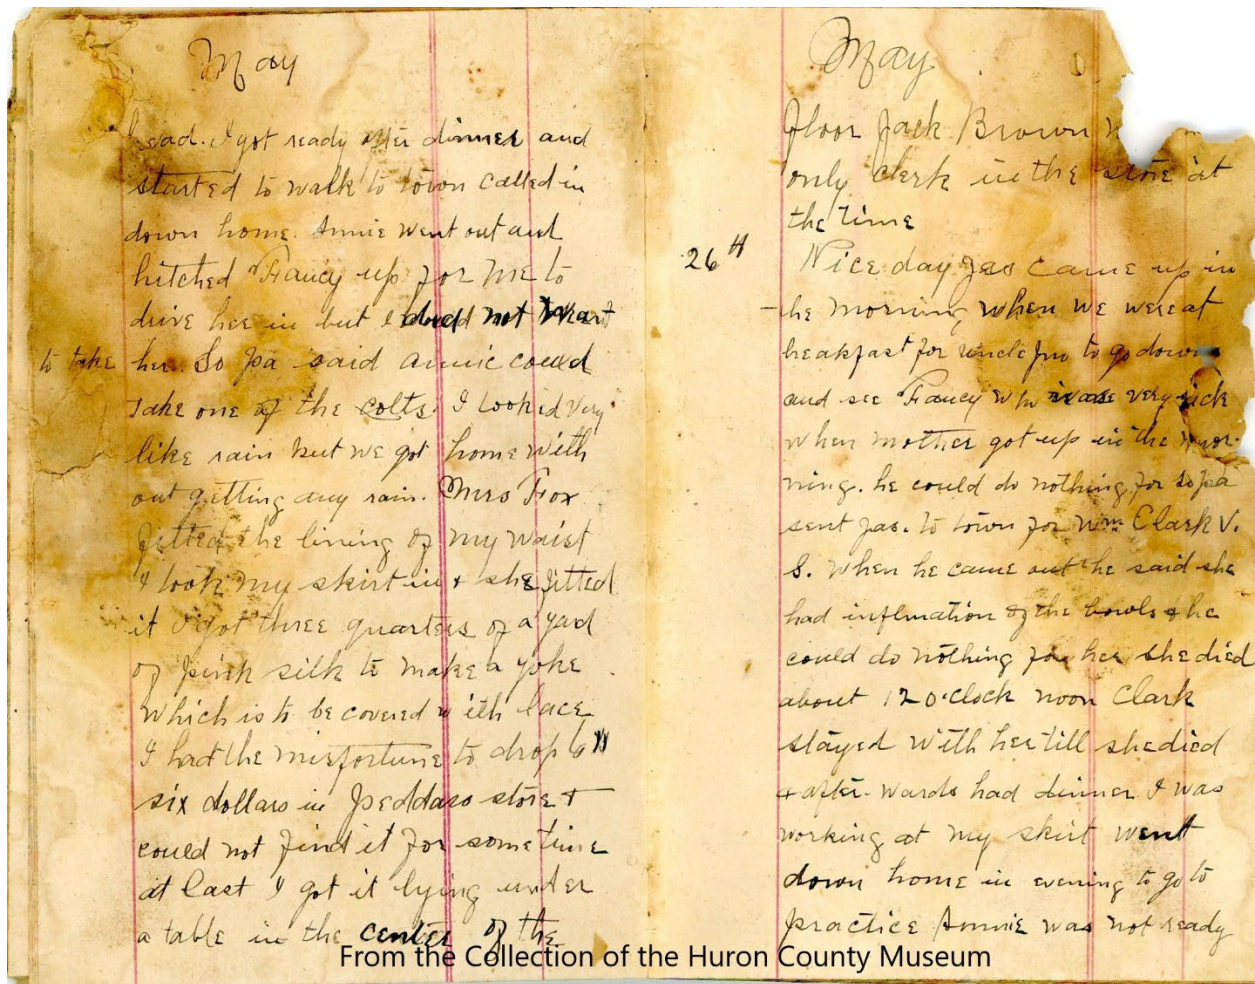 May
sad. I got ready after dinner and
started to walk to town called in
down home. Annie went out and
hitched Fancy up for me to
drive her in but I did not want
to take her. So Pa said Annie could
take one of the colts. I looked very
like rain but we got home with
out getting any rain. Mrs Fox
fitted the lining of my waist
I took my skirt in & she fitted
it I got three quarters of a yad
of pink silk to make a yoke
which is to be covered with lace
I had the misfortune to drop 6
six dollars in Jpeddaso store &
could not find it for some time
at last I got it lying under
a table in the center of the
May
floor Jack Brown
only clerk in the store at
the time
26th Nice day Jas came up in
the morning when we were at
beakfast for uncle Jno to go down
and see Fancy who was very sick
when mother got up in the mor-
ning. he could do nothing for so pa
sent Jas. to town for Wm Clark V.
S. when he came out he said she
had inflmation of the bowls & he
could do nothing for her she died
about 12 O'clock noon Clark
stayed with her till she died
& after-wards had dinner I was
working at my skirt went
down home in evening to go to
practice Annie was not ready
From the Collection of the Huron County Museum